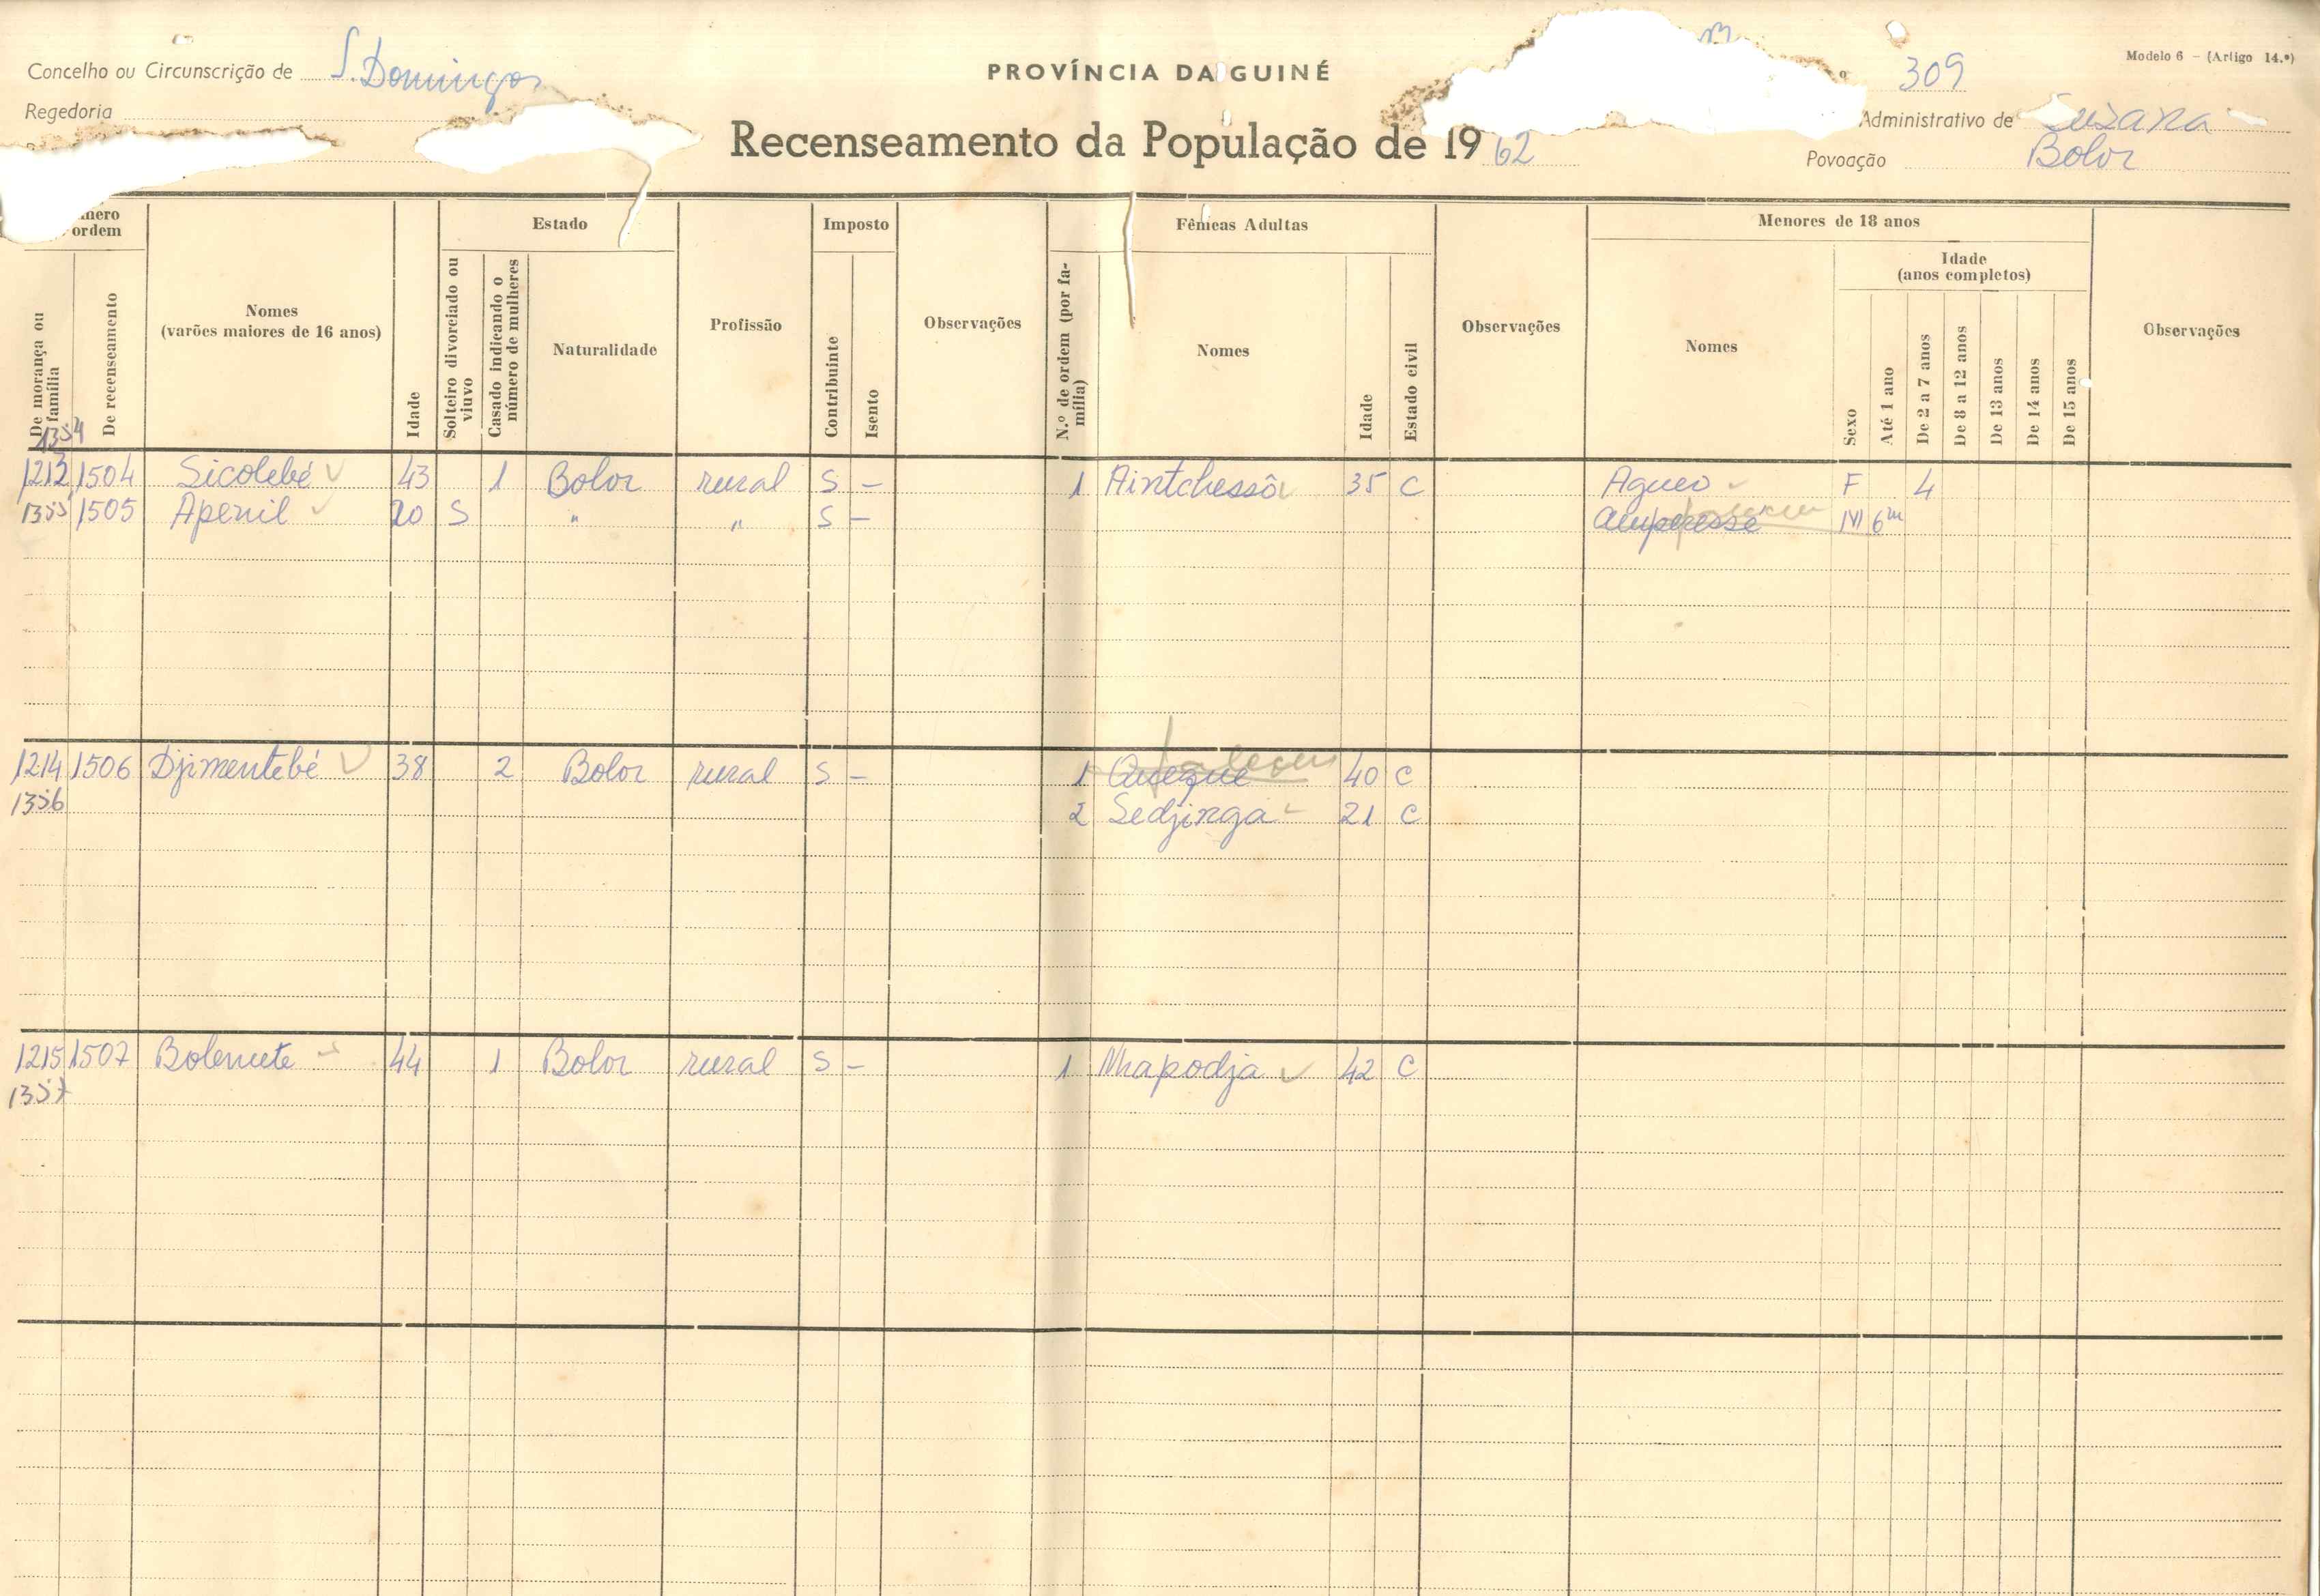 Modelo 6 – (Artigo 14.º)
PROVÍNCIA DA GUINÉ
Concelho ou Circunscrição de S. Domingos
309
Regedoria
Administrativo de Suzana
Recenseamento da População de 1962
Povoação Bolor
mero ordem
Estado
Imposto
Fêmeas Adultas
Menores de 18 anos
Idade (anos completos)
De morança ou família
De recenseamento
Nomes (varões maiores de 16 anos)
Idade
Solteiro divorciado ou viuvo
Casado indicando o número de mulheres
Naturalidade
Profissão
Contribuinte
Isento
Observações
N.º de ordem (por família)
Nomes
Idade
Estado civil
Observações
Nomes
Sexo
Até 1 ano
De 2 a 7 anos
De 8 a 12 anos
De 13 anos
De 14 anos
De 15 anos
Observações
1354
1213 1504 Sicolebé 43 1 Bolor rural S – 1 Aintchessô 35 C Agueo F 4
1355 1505 Apenil 20 S " " S – M 6m
1214 1506 Djimentebé 38 2 Bolor rural S – 1 Queque faleceu 40 C
1356 2 Sedjinga 21 C
1215 1507 Bolenute 44 1 Bolor rural S – 1 Nhapodja 42 C
1357